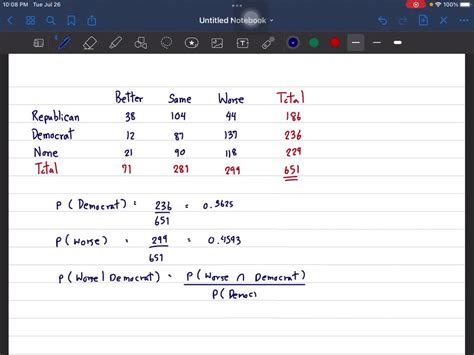 10:08 PM Tue Jul 26
100%
Untitled Notebook
Better Same Worse Total
Republican 38 104 44 186
Democrat 12 87 137 236
None 21 90 118 229
Total 71 281 299 651
P ( Democrat ) = 236 = 0.3625
651
P ( Worse ) = 299 = 0.4593
651
P ( Worse | Democrat ) = P ( Worse ∩ Democrat )
P ( Democ